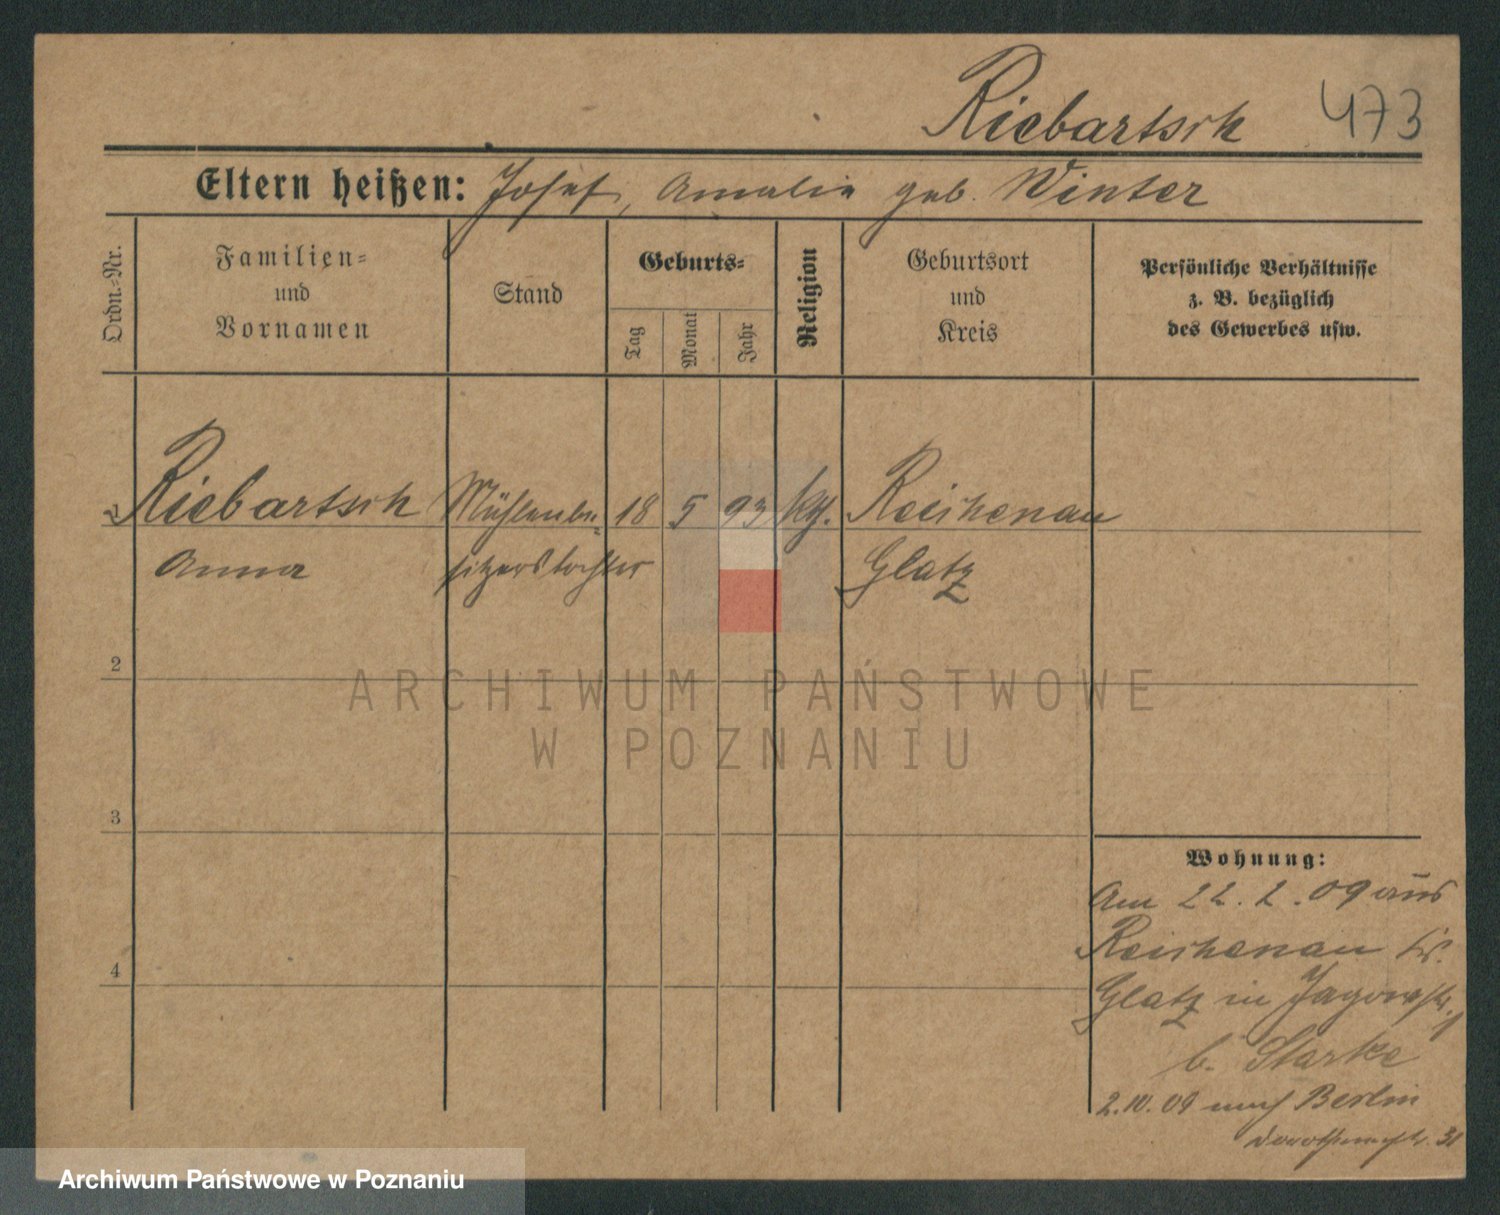 Riebartsch 473
Eltern heißen: Josef, Amalie geb. Winter
Ordn.-Nr.
Familien-
und
Vornamen
Stand
Geburts-
Tag
Monat
Jahr
Religion
Geburtsort
und
Kreis
Persönliche Verhältnisse
z. B. bezüglich
des Gewerbes usw.
1 Riebartsch Mühlenbe- 18 5 93 kth. Reichenau
Anna sitzerstochter Glatz
2
ARCHIWUM PAŃSTWOWE
W POZNANIU
3
Wohnung:
Am 22. 2. 09 aus
Reichenau Kr.
4
Glatz in Jagowstr. 1
b. Starke
2. IV. 09 nach Berlin
Dorotheenstr. 31
Archiwum Państwowe w Poznaniu